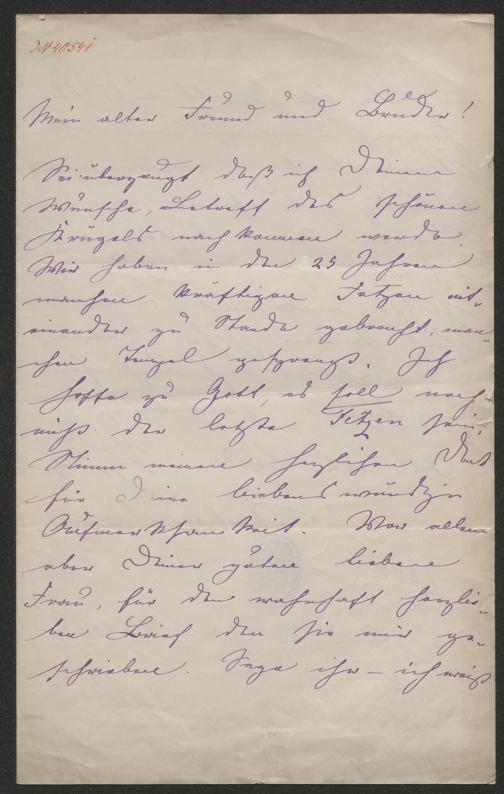 JN 40541
Mein alter Freund und Bruder!
Sei überzeugt daß ich Deinem
Wunsche, Betreff des schönen
Krügels nach kommen werde.
Wir haben in den 25 Jahren
manchen kräftigen Fetzen mit-
einander zu Stande gebracht, man-
chen Tempel gesprengt. Ich
hoffe zu Gott, es soll noch
nicht der letzte Fetzen sein.
Nimm meinen herzlichen Dank
für Deine liebenswürdige
Aufmerksamkeit. Vor allem
aber Deiner guten lieben
Frau, für den wahrhaft herzli-
chen Brief den sie mir ge-
schrieben. Sage ihr – ich weiß